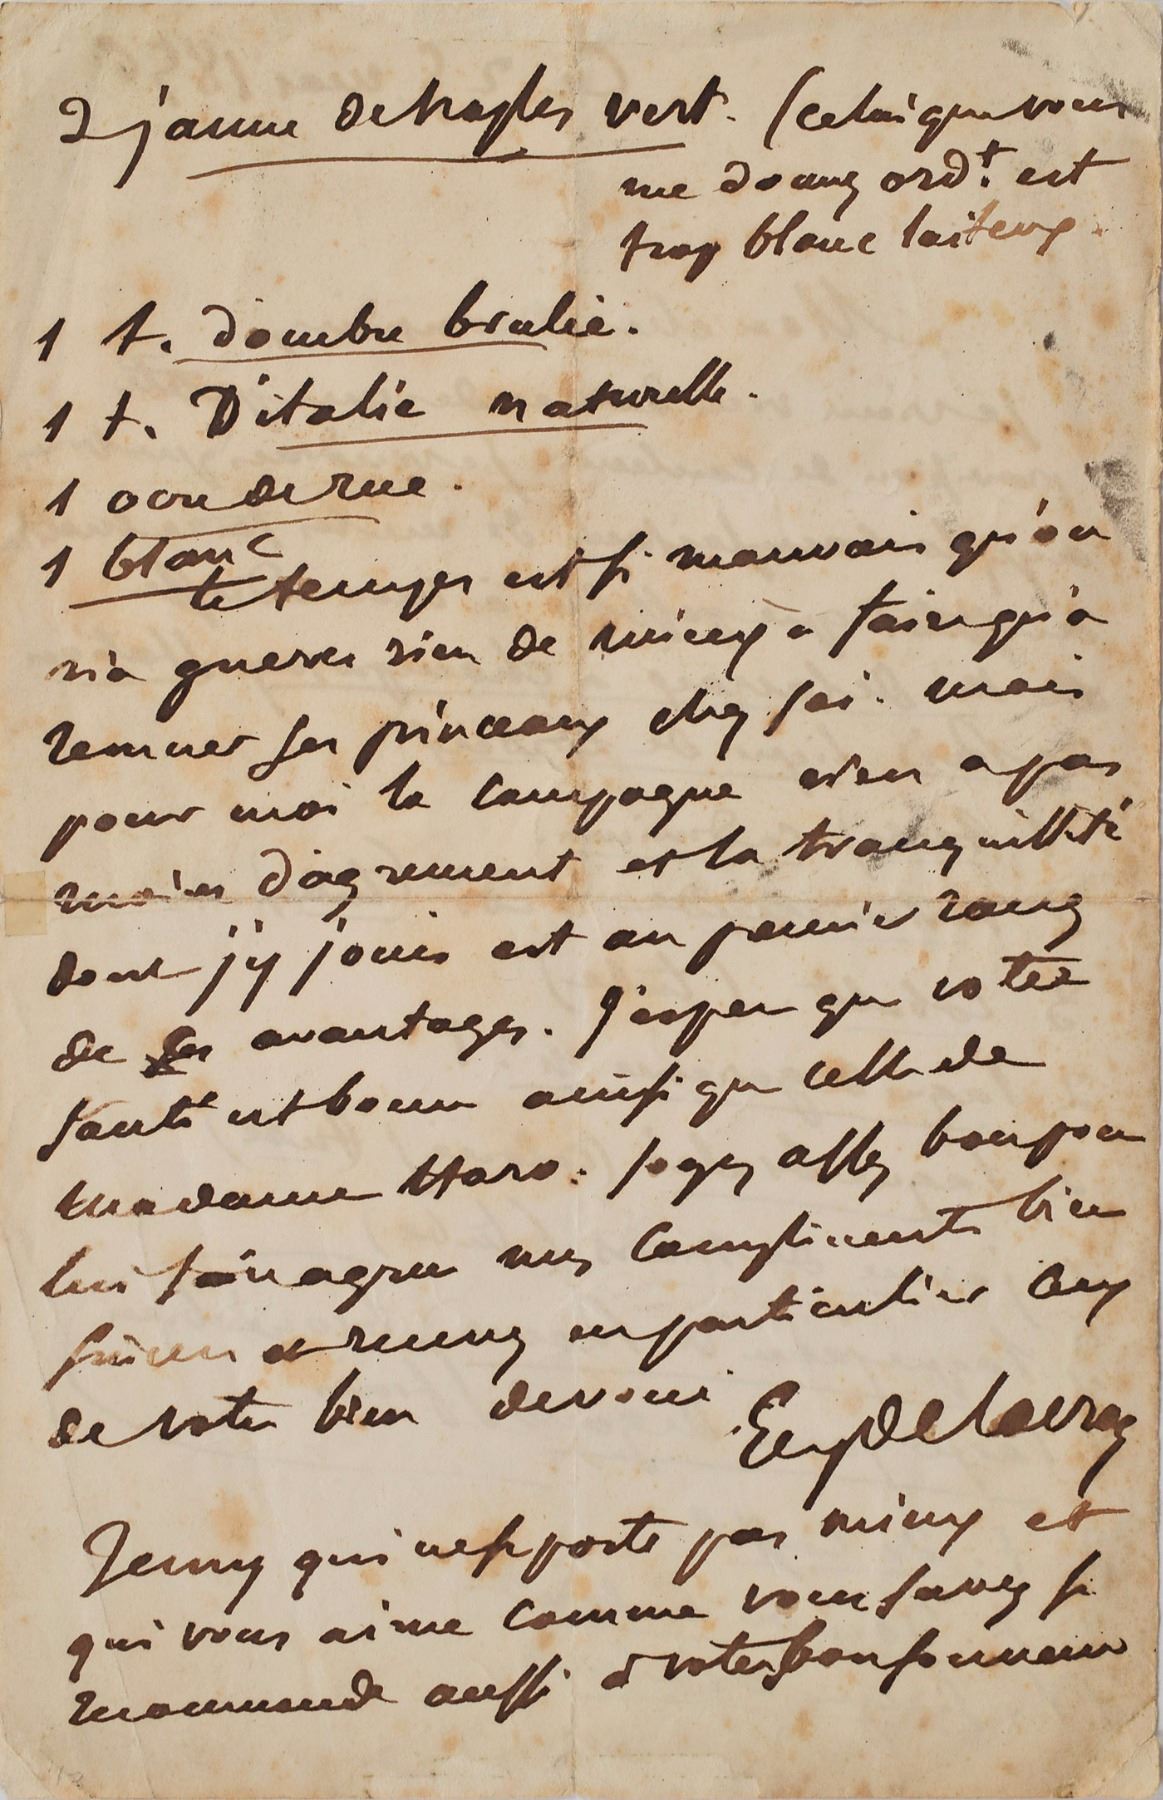 2 jaune de Naples vert. (celui que vous
me donnez ord.t est
trop blanc laiteux.
1 t. d'ombre brulée.
1 t. D'italie naturelle.
1 ocre de rue.
1 blanc
le temps est si mauvais qu'on
n'a gueres rien de mieux à faire qu'a
remuer ses pinceaux chez soi. mais
pour moi la campagne n'en a pas
moins d'agrement et la tranquillité
dont j'y jouis est au premier rang
de ses avantages. J'espere que votre
santé est bonne ainsi que celle de
Madame Haro: soyez assez bon pour
lui faire agreer mes compliments bien
sincères et recevez en particulier ceux
de votre bien devoué
Eug Delacroix
Jenny qui ne se porte pas mieux et
qui vous aime comme vous savez se
recommande aussi à votre bon souvenir